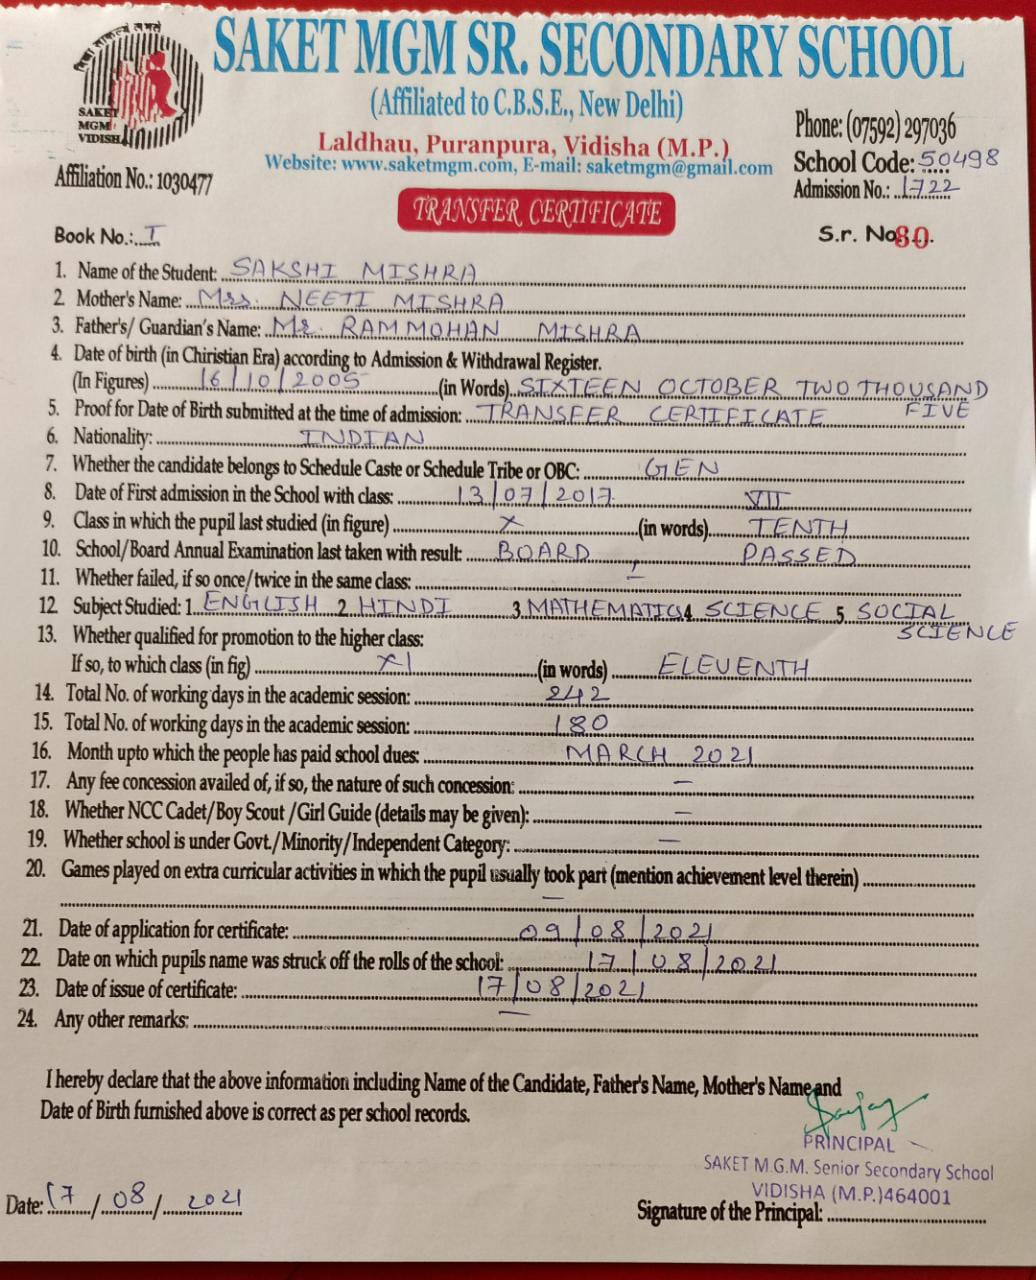 विद्या ताकत्यं लभते
SAKET
MGM
VIDISHA
SAKET MGM SR. SECONDARY SCHOOL
(Affiliated to C.B.S.E., New Delhi)
Laldhau, Puranpura, Vidisha (M.P.)
Website: www.saketmgm.com, E-mail: saketmgm@gmail.com
Phone: (07592) 297036
School Code: 50498
Affiliation No.: 1030477
Admission No.: 1722
TRANSFER CERTIFICATE
Book No.: I
S.r. No. 80
1. Name of the Student: SAKSHI MISHRA
2. Mother's Name: Mrs. NEETI MISHRA
3. Father's/ Guardian's Name: Mr. RAM MOHAN MISHRA
4. Date of birth (in Chiristian Era) according to Admission & Withdrawal Register.
(In Figures) 16/10/2005 (in Words) SIXTEEN OCTOBER TWO THOUSAND FIVE
5. Proof for Date of Birth submitted at the time of admission: TRANSFER CERTIFICATE
6. Nationality: INDIAN
7. Whether the candidate belongs to Schedule Caste or Schedule Tribe or OBC: GEN
8. Date of First admission in the School with class: 13/07/2017 VII
9. Class in which the pupil last studied (in figure) X (in words) TENTH
10. School/Board Annual Examination last taken with result: BOARD, PASSED
11. Whether failed, if so once/twice in the same class: –
12. Subject Studied: 1. ENGLISH 2. HINDI 3. MATHEMATICS 4. SCIENCE 5. SOCIAL SCIENCE
13. Whether qualified for promotion to the higher class:
If so, to which class (in fig) XI (in words) ELEVENTH
14. Total No. of working days in the academic session: 242
15. Total No. of working days in the academic session: 180
16. Month upto which the people has paid school dues: MARCH 2021
17. Any fee concession availed of, if so, the nature of such concession: –
18. Whether NCC Cadet/Boy Scout /Girl Guide (details may be given): –
19. Whether school is under Govt./Minority/Independent Category: –
20. Games played on extra curricular activities in which the pupil usually took part (mention achievement level therein)
–
21. Date of application for certificate: 09/08/2021
22. Date on which pupils name was struck off the rolls of the school: 17/08/2021
23. Date of issue of certificate: 17/08/2021
24. Any other remarks: –
I hereby declare that the above information including Name of the Candidate, Father's Name, Mother's Name and
Date of Birth furnished above is correct as per school records.
Sanjay
PRINCIPAL
SAKET M.G.M. Senior Secondary School
VIDISHA (M.P.)464001
Date: 17/08/2021
Signature of the Principal: